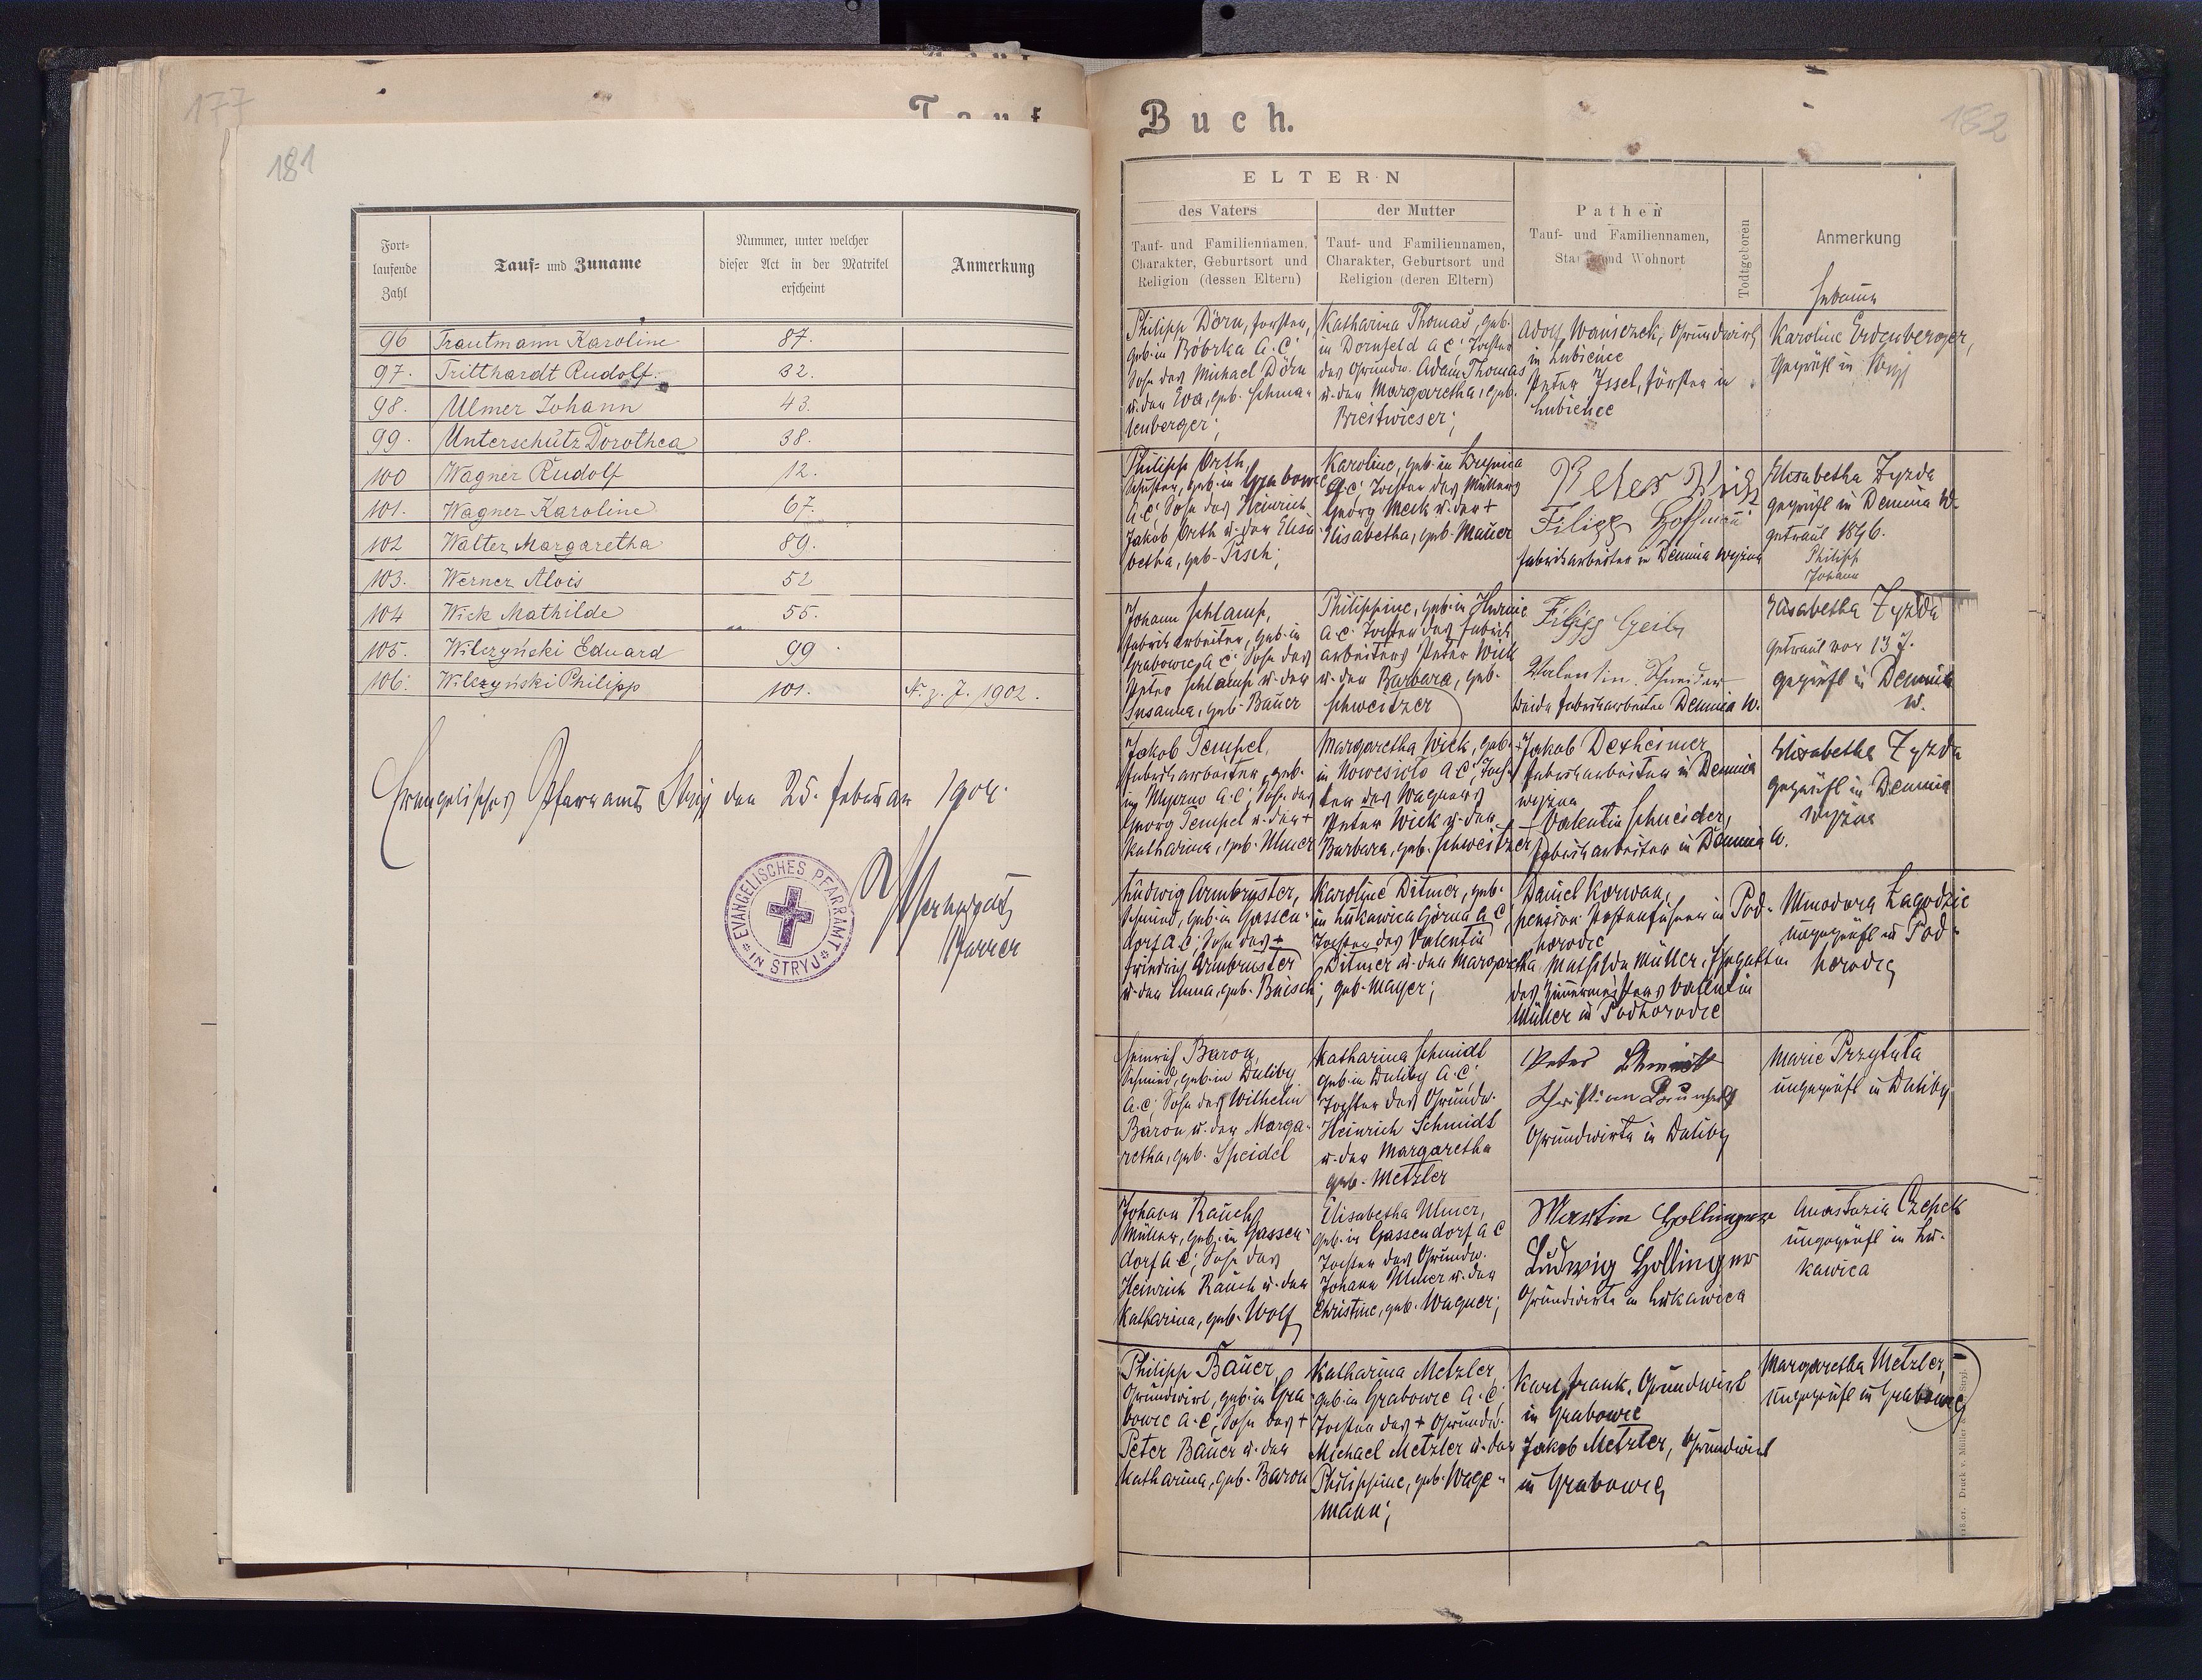 177
181
Tauf
Fort-
laufende
Zahl
Tauf- und Zuname
Nummer, unter welcher
dieser Act in der Matrikel
erscheint
Anmerkung
96 Trautmann Karoline 87.
97. Tritthardt Rudolf. 32.
98. Ulmer Johann 43.
99. Unterschütz Dorothea 38.
100 Wagner Rudolf 12.
101. Wagner Karoline 67.
102 Walter Margaretha 89.
103. Werner Alois 52
104 Wick Mathilde 55.
105. Wilczyński Eduard 99
106. Wilczyński Philipp 101. N. z. J. 1902.
Evangelisches Pfarramt Stryj den 25. Februar 1904.
EVANGELISCHES PFARRAMT
IN STRYJ
Pfarrer
Buch.
182
ELTERN
des Vaters
Tauf- und Familiennamen,
Charakter, Geburtsort und
Religion (dessen Eltern)
der Mutter
Tauf- und Familiennamen,
Charakter, Geburtsort und
Religion (deren Eltern)
Pathen
Tauf- und Familiennamen,
Stand und Wohnort
Todtgeboren
Anmerkung
Hebamme
Philipp Dörn, Förster,
geb. in Bóbrka A.C.
Sohn des Michael Dörn
u. der Eva, geb. Schma-
lenberger;
Katharina Thomas, geb.
in Dornfeld A.C; Tochter
des Grundw. Adam Thomas
u. der Margaretha, geb.
Breitwieser;
Adolf Waniczek, Grundwirt
in Lubience
Peter Issel, Förster in
Lubience
Karoline Erdenberger,
Geprüft in Stryj
Philipp Orth,
Schuster, geb. in Grabowce
A.C; Sohn des Heinrich
Jakob Orth u. der Elisa-
betha, geb. Pisch;
Karoline, geb. in
A.C; Tochter des Müllers
Georg Meck u. der +
Elisabetha, geb. Mauer
Peter
Filipp Hoffman
Fabriksarbeiter in Demnia wyżna
Elisabetha Zyzda
geprüft in Demnia W.
getraut 1896.
Philipp
Johann
Johann Schlamp,
Fabriksarbeiter, geb. in
Grabowce A.C; Sohn des
Peter Schlamp u. der
Susanna, geb. Bauer
Philippine, geb. in Hurnie
A.C. Tochter des Fabrik
arbeiters Peter Wick
u. der Barbara, geb.
Schweitzer
Filipp Geib
Valentin Schneider
beide Fabriksarbeiter Demnia W.
Elisabetha Zyzda
getraut vor 13 J.
geprüft in Demnia
W.
Jakob Tempel,
Fabriksarbeiter, geb.
in Mizuno A.C; Sohn des
Georg Tempel u. der +
Katharina, geb. Ulmer
Margaretha Wick, geb.
in Nowesioło A.C; Toch-
ter des Wagners
Peter Wick u. der
Barbara, geb. Schweitzer
Jakob Dexheimer
Fabriksarbeiter in Demnia
wyżna
Valentin Schneider,
Fabriksarbeiter in Demnia W.
Elisabetha Zyzda
geprüft in Demnia
Wyżna
Ludwig Armbruster,
Schmied, geb. in Gassen-
dorf A.C; Sohn des +
Friedrich Armbruster
u. der Anna, geb. Buisch;
Karoline Ditmer, geb.
in Łukawica Górna A.C
Tochter des Valentin
Ditmer u. der Margaretha,
geb. Mayer;
Daniel Korwan,
pension. Postenführer in Pod-
horodce
Mathilda Müller, Ehegattin
des Zimmermeisters Valentin
Müller in Podhorodce
Zagodzie
ungeprüft in Pod-
horodce
Heinrich Baron,
Schmied, geb. in Duliby
A.C; Sohn des Wilhelm
Baron u. der Marga-
retha, geb. Speidel
Katharina Schmidt
geb. in Duliby A.C;
Tochter des Grundw.
Heinrich Schmidt
u. der Margaretha
geb. Metzler
Peter Schmidt
Christian
Grundwirte in Duliby
Marie Przytuła
ungeprüft in Duliby
Johann Rauch
Müller, geb. in Gassen-
dorf A.C; Sohn des
Heinrich Rauch u. der
Katharina, geb. Wolf
Elisabetha Ulmer,
geb. in Gassendorf A C
Tochter des Grundw.
Johann Ulmer u. der
Christine, geb. Wagner;
Martin Hollinger
Ludwig Hollinger
Grundwirte in Łukawica
Anastazia Czepek
ungeprüft in Łu-
kawica
Philipp Bauer,
Grundwirt, geb. in Gra-
bowce A.C; Sohn des +
Peter Bauer u. der
Katharina, geb. Baron
Katharina Metzler,
geb. in Grabowce A.C;
Tochter des + Grundw.
Michael Metzler u. der
Philippine, geb. Wage-
mann;
Karl Frank, Grundwirt
in Grabowce
Jakob Metzler, Grundwirt
in Grabowce
Margaretha Metzler,
ungeprüft in Grabowce